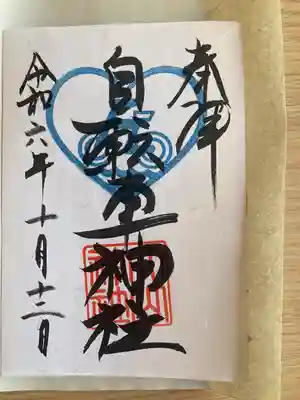 奉拝
自転車神社
令和六年十月十二日